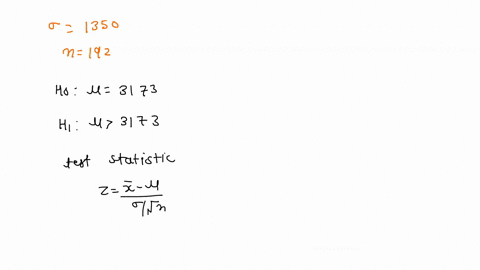 σ = 1350
n = 192
H₀: μ = 3173
H₁: μ > 3173
test statistic
z = (x̄ - μ) / (σ/√n)